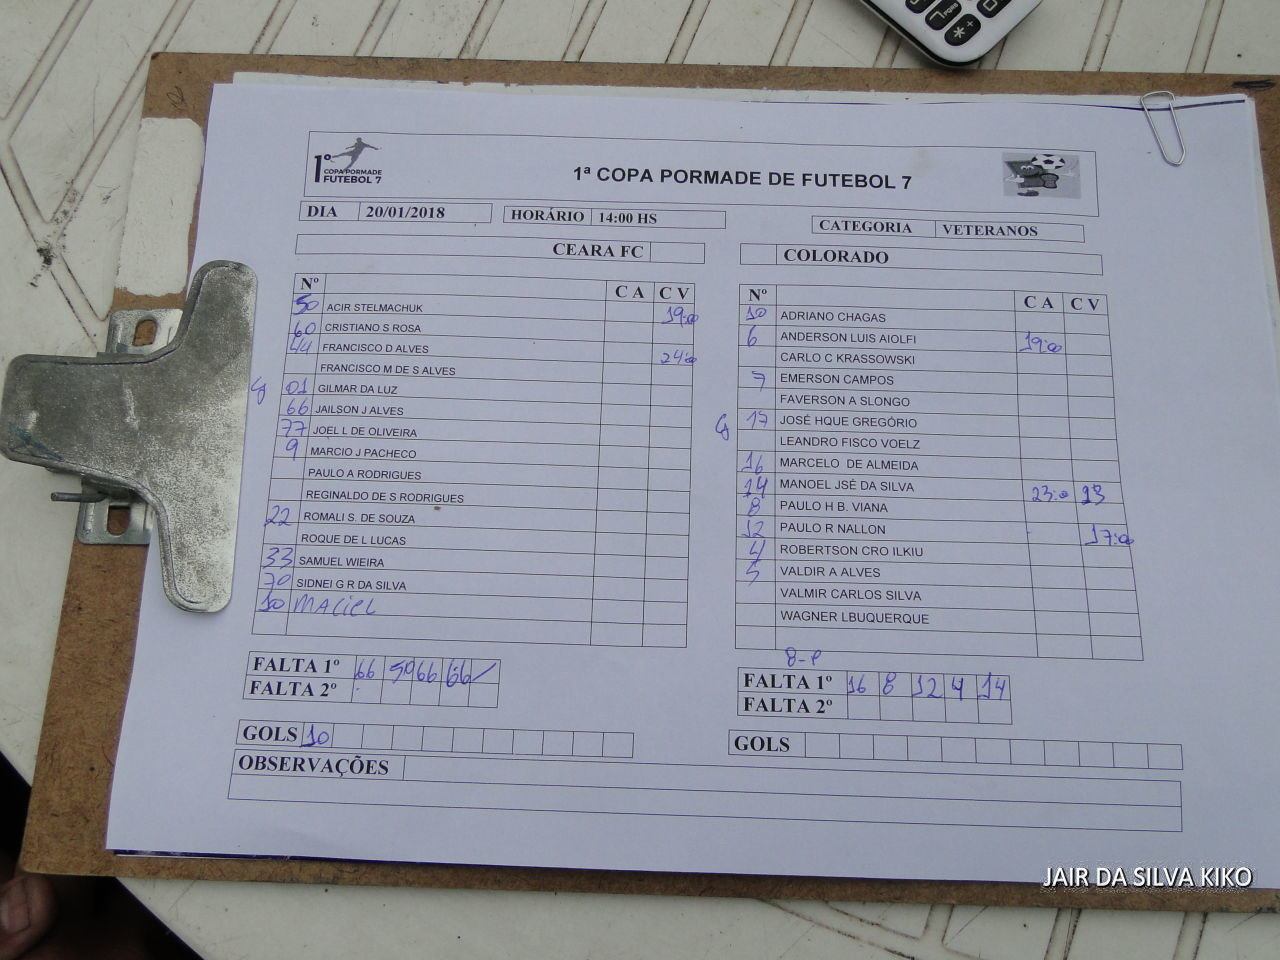 1º
COPA PORMADE
FUTEBOL 7
1ª COPA PORMADE DE FUTEBOL 7
DIA 20/01/2018 HORÁRIO 14:00 HS CATEGORIA VETERANOS
CEARA FC
Nº C A C V
50 ACIR STELMACHUK 19:00
60 CRISTIANO S ROSA
44 FRANCISCO D ALVES 24:00
FRANCISCO M DE S ALVES
G 01 GILMAR DA LUZ
66 JAILSON J ALVES
77 JOEL L DE OLIVEIRA
9 MARCIO J PACHECO
PAULO A RODRIGUES
REGINALDO DE S RODRIGUES
22 ROMALI S. DE SOUZA
ROQUE DE L LUCAS
33 SAMUEL WIEIRA
70 SIDNEI G R DA SILVA
10 MACIEL
FALTA 1º 66 50 66 66
FALTA 2º
GOLS 10
COLORADO
Nº C A C V
10 ADRIANO CHAGAS
6 ANDERSON LUIS AIOLFI 19:00
CARLO C KRASSOWSKI
7 EMERSON CAMPOS
FAVERSON A SLONGO
G 17 JOSÉ HQUE GREGÓRIO
LEANDRO FISCO VOELZ
16 MARCELO DE ALMEIDA
14 MANOEL JSÉ DA SILVA 23:00 13
8 PAULO H B. VIANA
12 PAULO R NALLON 17:00
4 ROBERTSON CRO ILKIU
5 VALDIR A ALVES
VALMIR CARLOS SILVA
WAGNER LBUQUERQUE
8-P
FALTA 1º 16 8 12 4 14
FALTA 2º
GOLS
OBSERVAÇÕES
JAIR DA SILVA KIKO